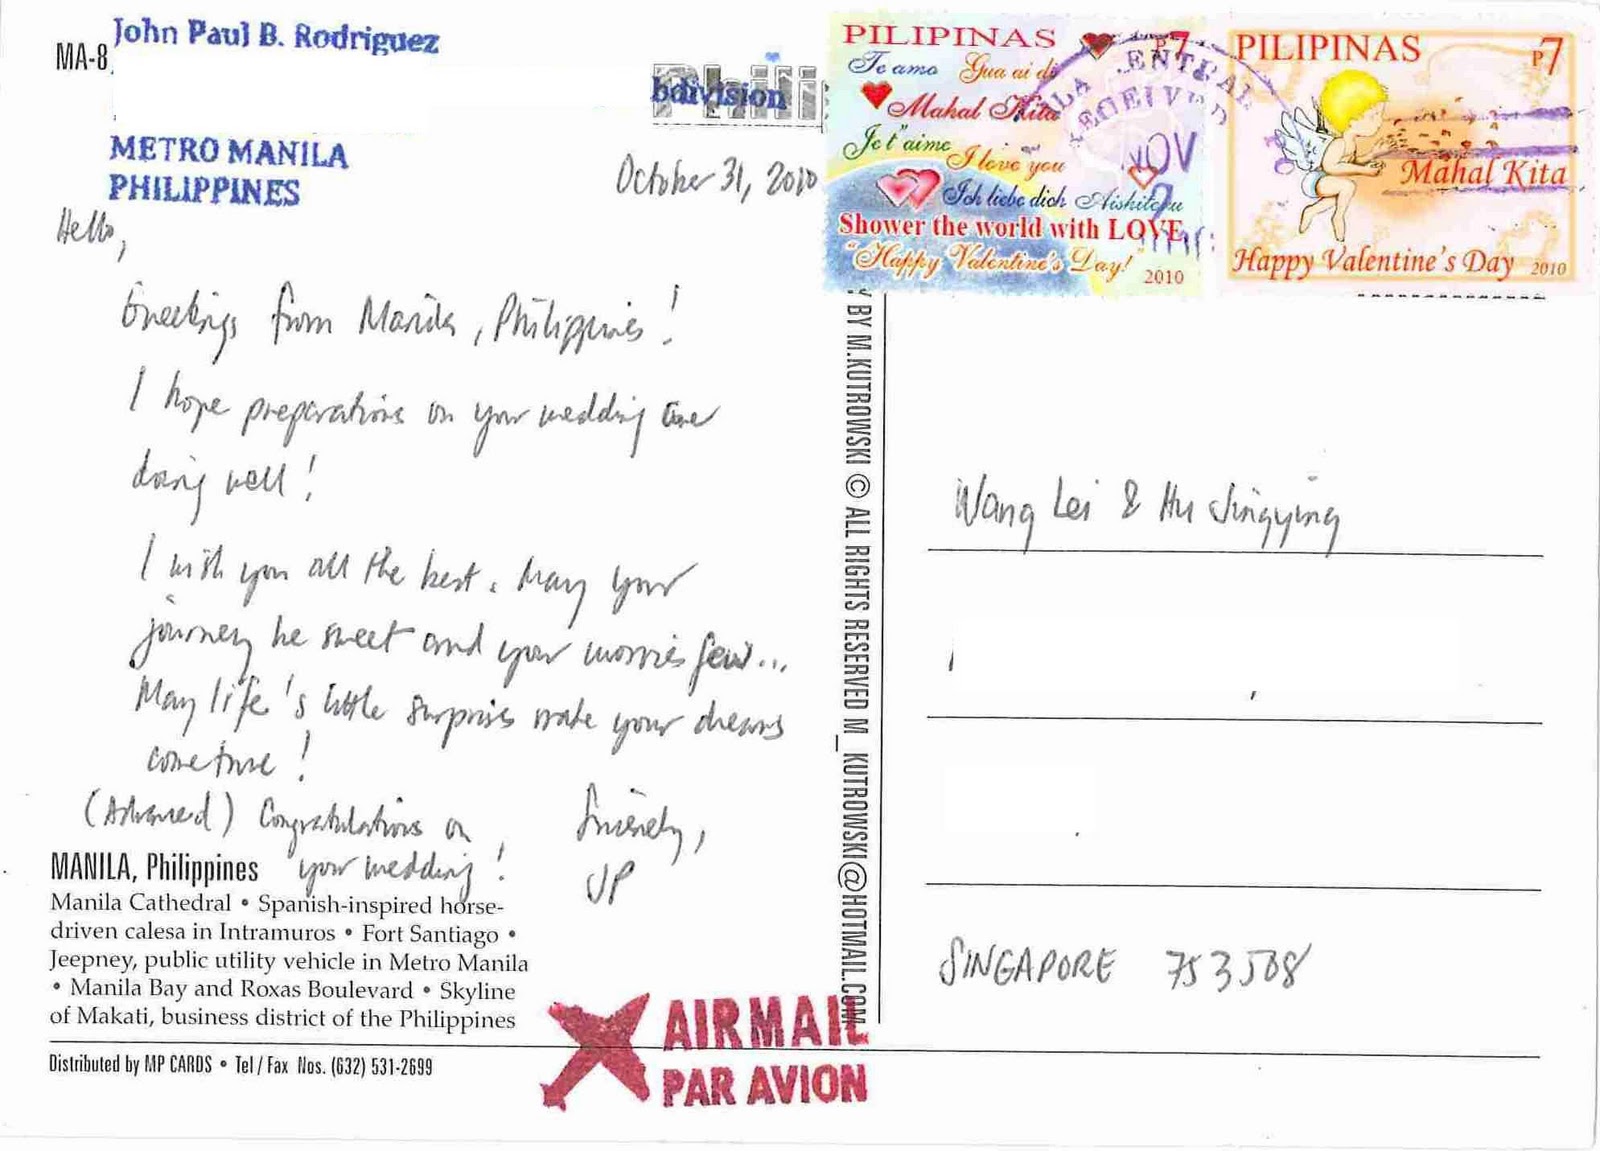 John Paul B. Rodriguez
MA-8
bdivision
METRO MANILA
PHILIPPINES
October 31, 2010
Hello,
Greetings from Manila, Philippines!
I hope preparations on your wedding are
doing well!
I wish you all the best. May your
journey be sweet and your worries few...
May life's little surprises make your dreams
come true!
(Advanced) Congratulations on
your wedding!
Sincerely,
JP
MANILA, Philippines
Manila Cathedral • Spanish-inspired horse-
driven calesa in Intramuros • Fort Santiago •
Jeepney, public utility vehicle in Metro Manila
• Manila Bay and Roxas Boulevard • Skyline
of Makati, business district of the Philippines
Distributed by MP CARDS • Tel / Fax Nos. (632) 531-2699
AIRMAIL
PAR AVION
BY M.KUTROWSKI © ALL RIGHTS RESERVED M_KUTROWSKI@HOTMAIL.COM
PILIPINAS P7
Te amo Gua ai di
Mahal Kita
Je t'aime I love you
Ich liebe dich Aishiteru
Shower the world with LOVE
"Happy Valentine's Day!"
2010
PILIPINAS P7
Mahal Kita
Happy Valentine's Day 2010
NOV
Wang Lei & Hu Jingying
SINGAPORE 753508